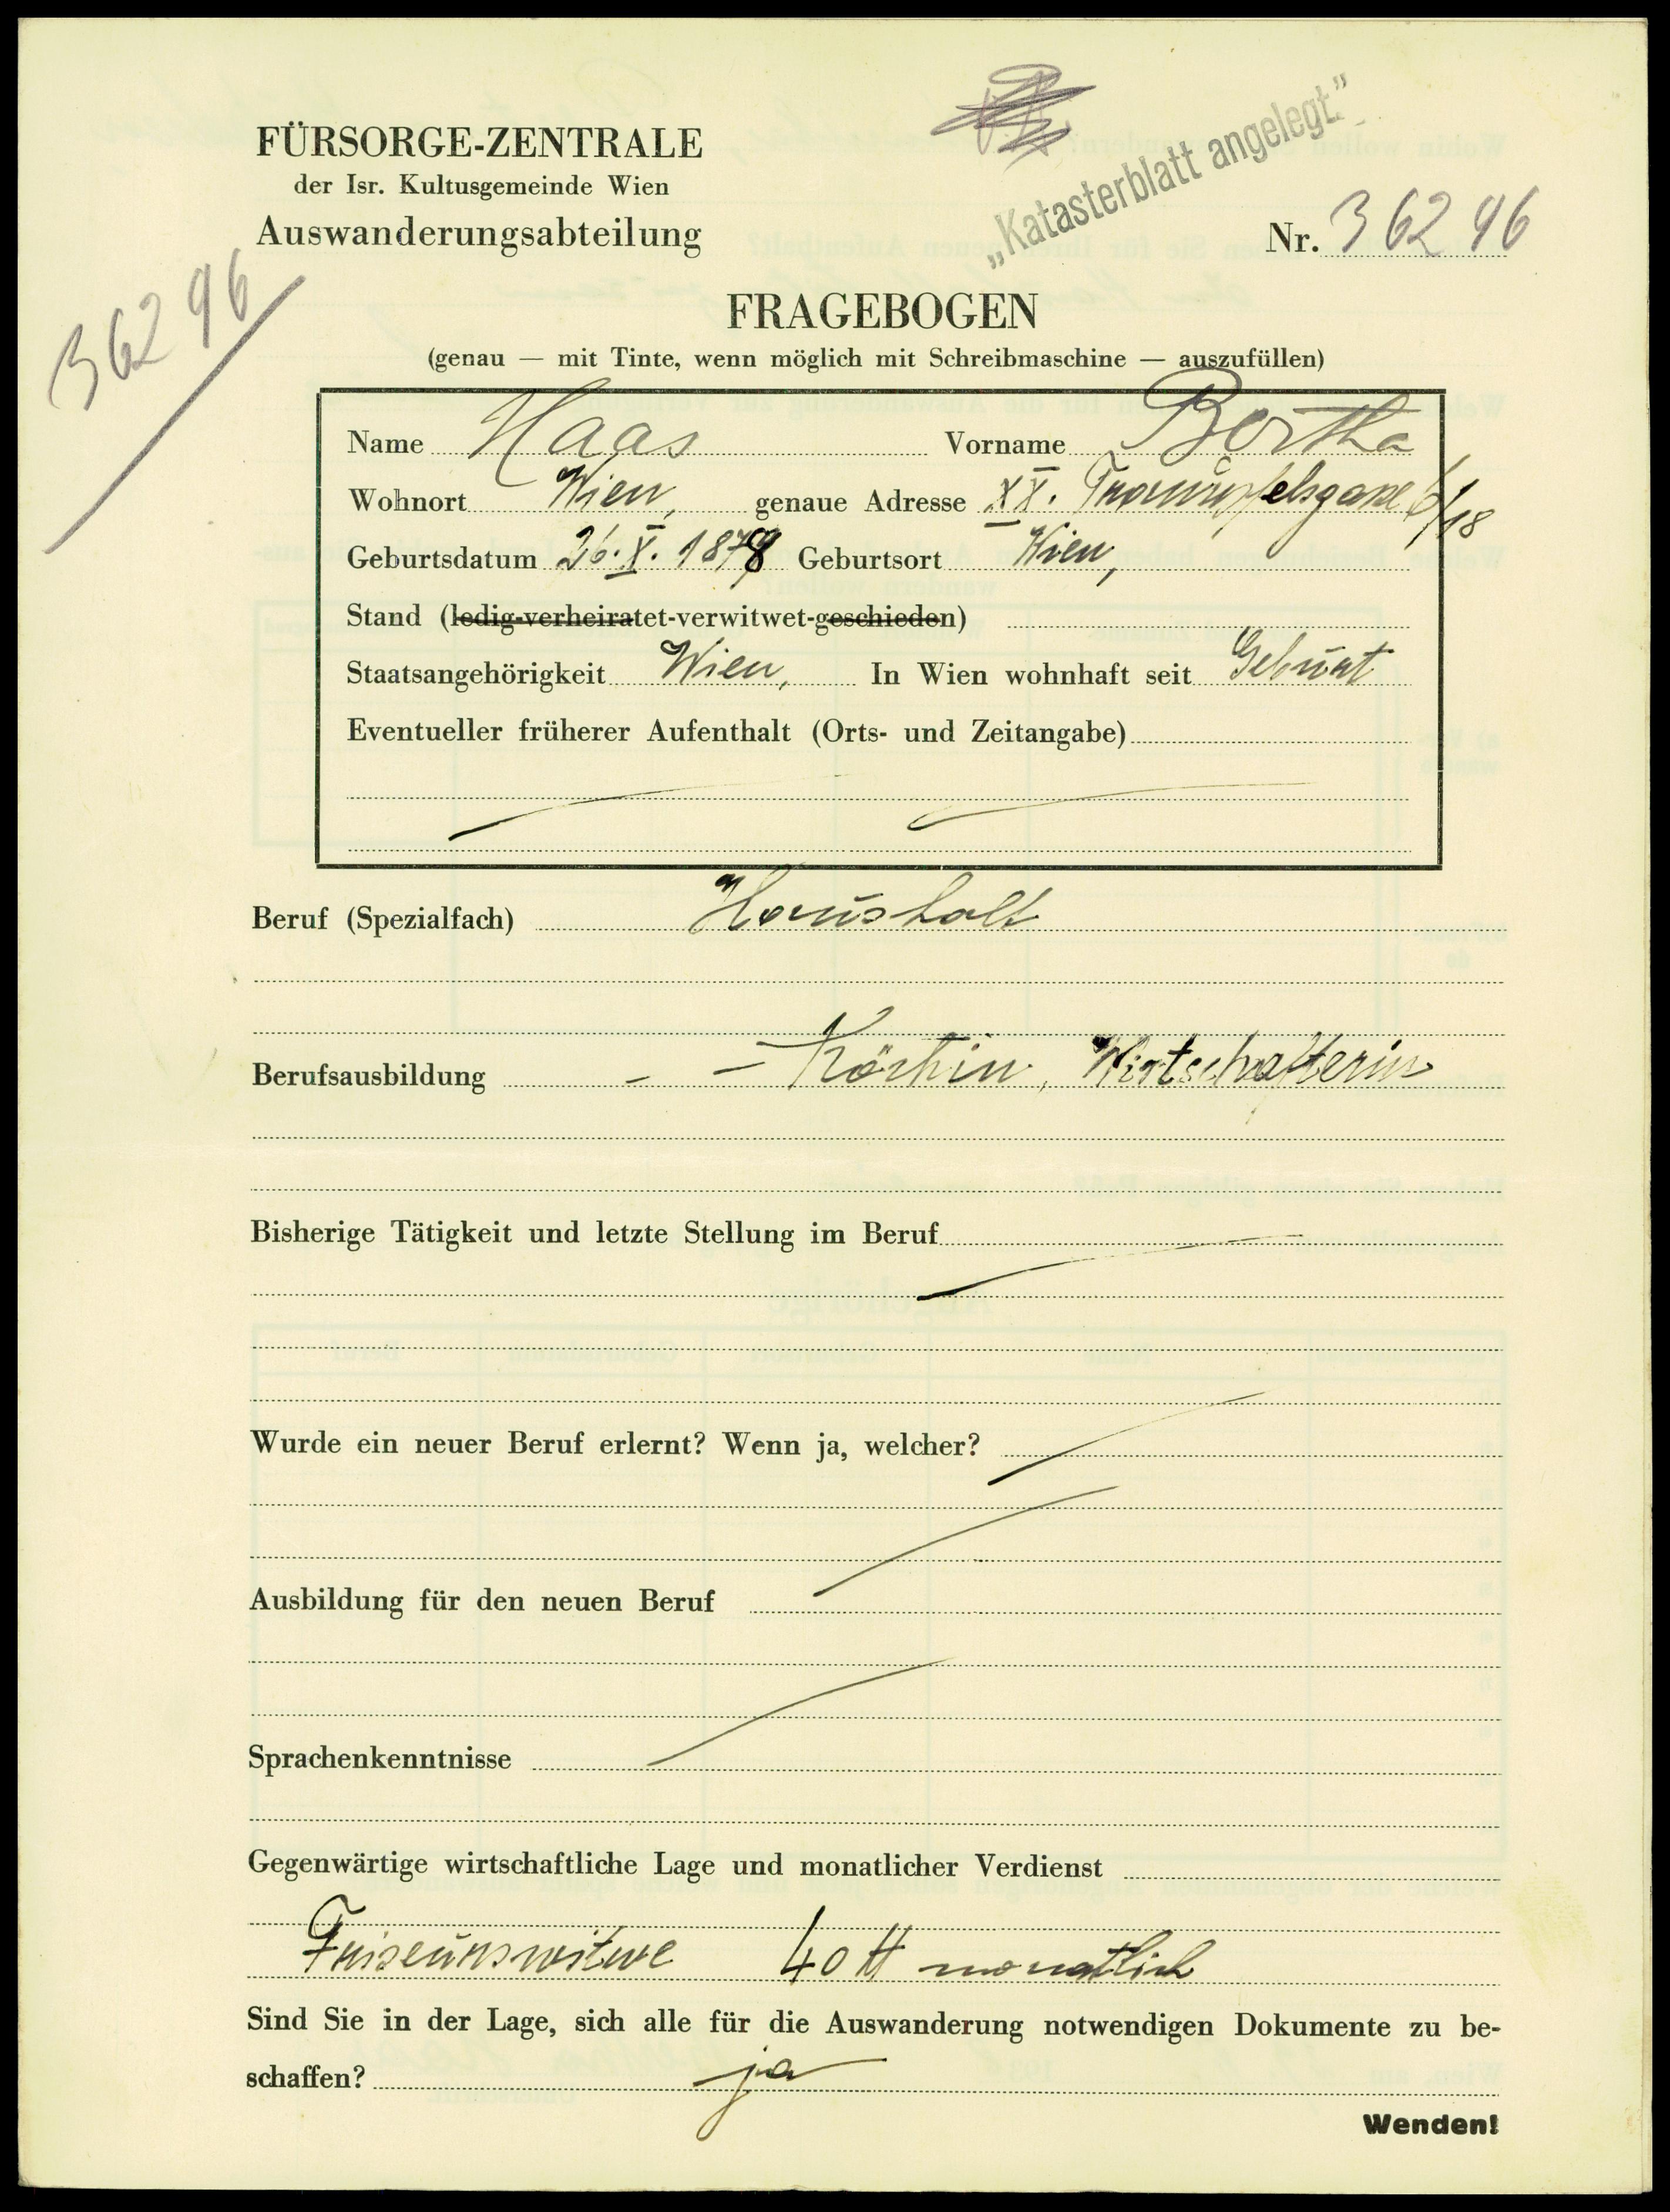 „Katasterblatt angelegt."
FÜRSORGE-ZENTRALE
der Isr. Kultusgemeinde Wien
Auswanderungsabteilung
Nr. 36296
36296
FRAGEBOGEN
(genau — mit Tinte, wenn möglich mit Schreibmaschine — auszufüllen)
Name Haas Vorname Bertha
Wohnort Wien, genaue Adresse XX. Traunfelsgasse 6/18
Geburtsdatum 26. X. 1878 Geburtsort Wien,
Stand (ledig-verheiratet-verwitwet-geschieden)
Staatsangehörigkeit Wien, In Wien wohnhaft seit Geburt
Eventueller früherer Aufenthalt (Orts- und Zeitangabe)
Beruf (Spezialfach) Haushalt
Berufsausbildung - - - Köchin, Wirtschafterin
Bisherige Tätigkeit und letzte Stellung im Beruf
Wurde ein neuer Beruf erlernt? Wenn ja, welcher?
Ausbildung für den neuen Beruf
Sprachenkenntnisse
Gegenwärtige wirtschaftliche Lage und monatlicher Verdienst
Friseurswitwe 40 M monatlich
Sind Sie in der Lage, sich alle für die Auswanderung notwendigen Dokumente zu be-
schaffen? ja
Wenden!